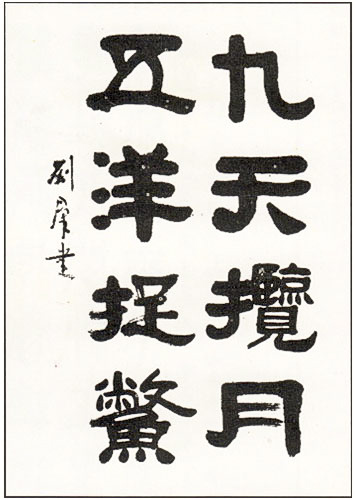 九天攬月
五洋捉鱉
劉庠書